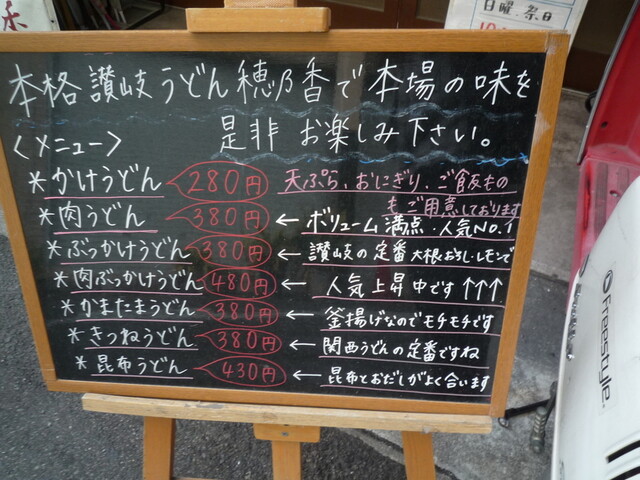 日曜.祭日
本格讃岐うどん穂乃香で本場の味を
是非 お楽しみ下さい。
<メニュー>
*かけうどん 280円 天ぷら、おにぎり、ご飯もの
もご用意しております
*肉うどん 380円 ← ボリューム満点・人気NO.1
*ぶっかけうどん 380円 ← 讃岐の定番 大根おろし・レモンで
*肉ぶっかけうどん 480円 ← 人気上昇中です↑↑↑
*かまたまうどん 380円 ← 釜揚げなのでモチモチです
*きつねうどん 380円 ← 関西うどんの定番ですね
*昆布うどん 430円 ← 昆布とおだしがよく合います
Freestyle.